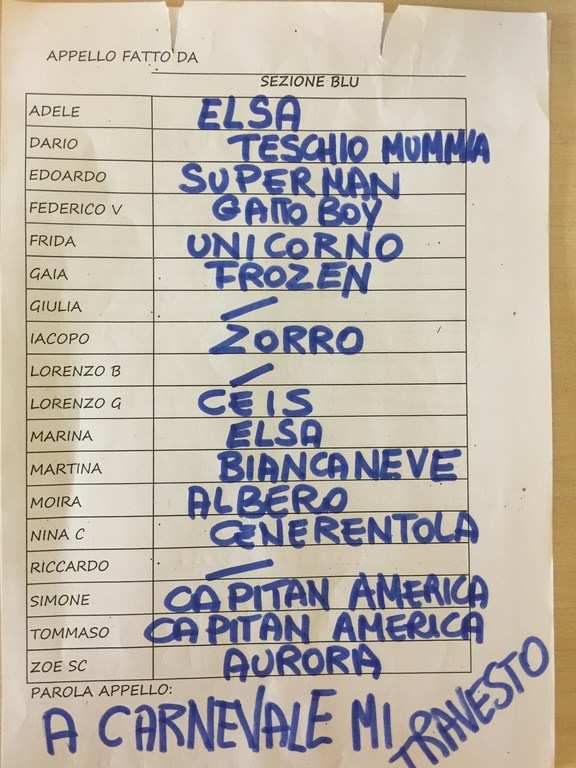 APPELLO FATTO DA
SEZIONE BLU
ADELE ELSA
DARIO TESCHIO MUMMIA
EDOARDO SUPERMAN
FEDERICO V GATTO BOY
FRIDA UNICORNO
GAIA FROZEN
GIULIA /
IACOPO ZORRO
LORENZO B /
LORENZO G CEIS
MARINA ELSA
MARTINA BIANCANEVE
MOIRA ALBERO
NINA C CENERENTOLA
RICCARDO /
SIMONE CAPITAN AMERICA
TOMMASO CAPITAN AMERICA
ZOE SC AURORA
PAROLA APPELLO:
A CARNEVALE MI TRAVESTO